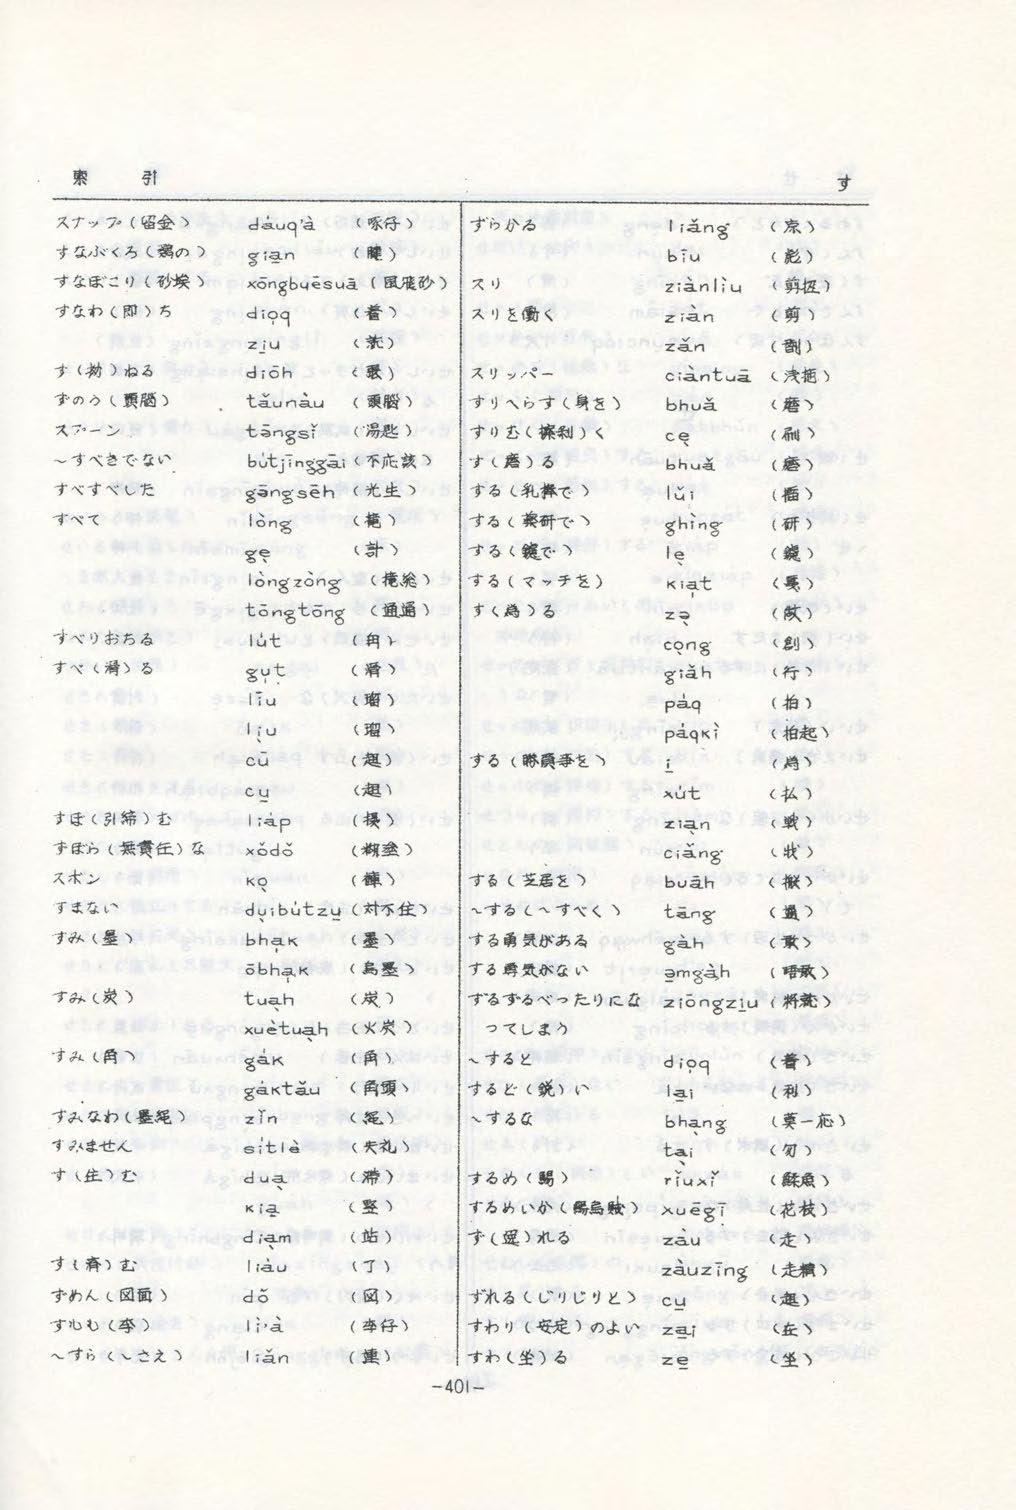 索 引
す
スナップ(留金) dáuq'à (啄仔)
すなぶくろ(鶏の) gian
すなぼこり(砂埃) xōngbuēsuā (風飛砂)
すなわ(即)ち dioq (着)
ziu (就)
す(拗)ねる diōh
ずのう(頭脳) tǎunàu (頭脳)
スプーン tāngsǐ (湯匙)
~すべきでない bútjīnggāi (不応該)
すべすべした gāngsēh (光生)
すべて lòng
ge (計)
lòngzòng
tōngtōng (通通)
すべりおちる lút
すべ(滑)る gut (滑)
līu (瑠)
liu (瑠)
cū (趄)
cu (趄)
すぼ(引締)む liáp
ずぼら(無責任)な xǒdǒ (糊塗)
ズボン ko (褲)
すまない duibútzu (対不住)
すみ(墨) bhak (墨)
ōbhak (烏墨)
すみ(炭) tuah (炭)
xuètuah (火炭)
すみ(角) gák (角)
gáktǎu (角頭)
すみなわ(墨縄) zǐn (縄)
すみません sítlè (失礼)
す(住)む dua (滞)
kia (竪)
diam (站)
す(済)む liàu (了)
ずめん(図面) dǒ (図)
すもも(李) lì'à (李仔)
~すら(~さえ) liǎn (連)
ずらかる liǎng
bīu (彪)
スリ ziànlìu
スリを働く ziàn (剪)
zǎn
スリッパー ciàntuā
すりへらす(身を) bhuǎ (磨)
すりむ(擦剝)く ce (刷)
す(磨)る bhuǎ (磨)
する(乳棒で) lǔi (擂)
する(薬研で) ghìng (研)
する(鑢で) le (鑢)
する(マッチを) kiat
す(為)る zə
cong (創)
giáh (行)
páq (拍)
páqkì (拍起)
する(勝負事を) ī (為)
xút (払)
zian (戦)
ciǎng
する(芝居を) buāh (搬)
~する(~すべく) tāng (通)
する勇気がある gàh (敢)
する勇気がない amgàh (唔敢)
ずるずるべったりにな ziōngziu (将就)
ってしまう
~すると dioq (着)
するど(鋭)い lai (利)
~するな bhang (莫一応)
tai (勿)
するめ(鯣) rǐuxǐ (鰇魚)
するめいか(鯣烏賊) xuēgī (花枝)
ず(逕)れる zàu (走)
zàuzīng
ずれる(じりじりと) cu (趄)
すわり(安定)のよい zai (在)
すわ(坐)る ze (坐)
-401-